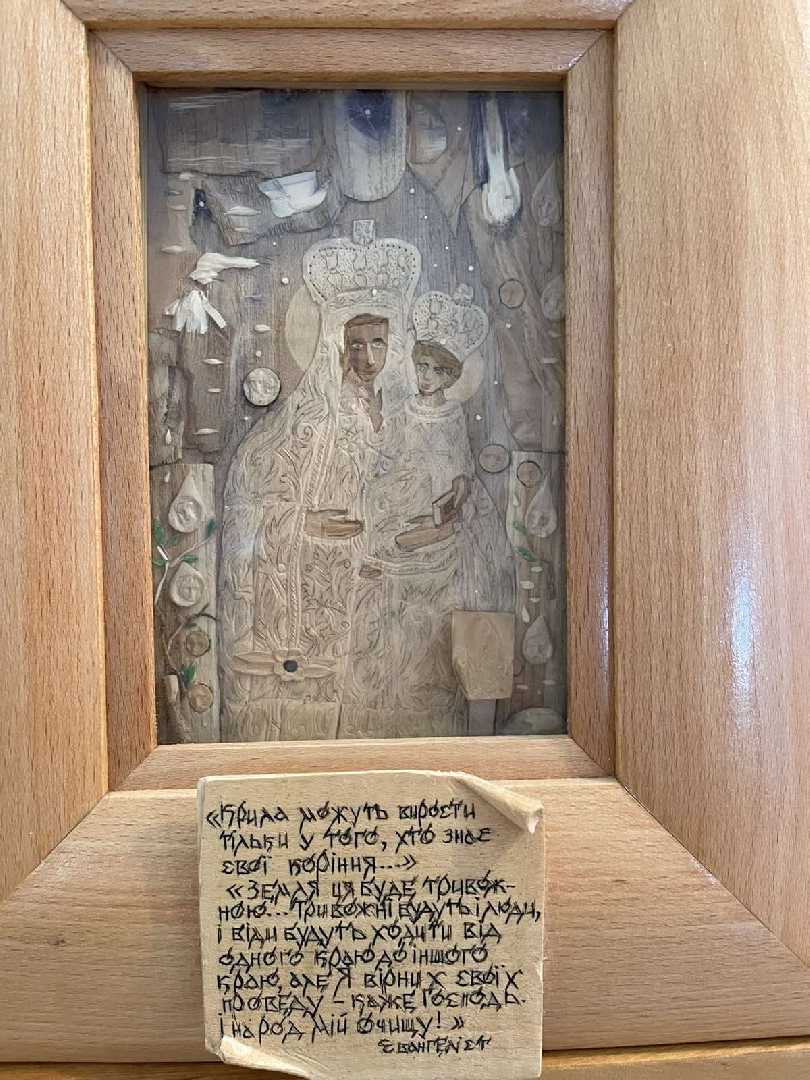 «Крила можуть вирости
тільки у того, хто знає
свої коріння...»
«Земля ця буде тривож-
ною... Тривожні будуть і люди,
і віди будуть ходити від
одного краю до іншого
краю, але Я вірних своїх
проведу – каже Господь.
І народ мій очищу!»
Євангеліст